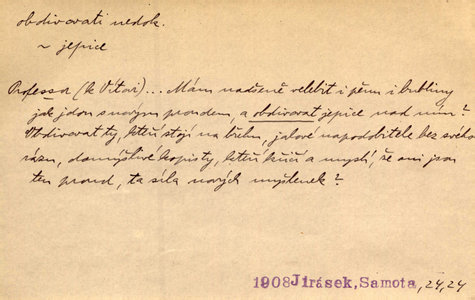 obdivovati nedok.
~ jepice
Professor (k Vítovi)... Mám nadšeně velebit i pěnu i bubliny
jak jdou s novým proudem, a obdivovat jepice nad ním?
Obdivovat ty, kteří stojí na břehu, jalové napodobitele bez svého
rázu, domýšlivé kopisty, kteří křičí a myslí, že oni jsou
ten proud, ta síla nových myšlenek?
1908 Jirásek, Samota, 24,24